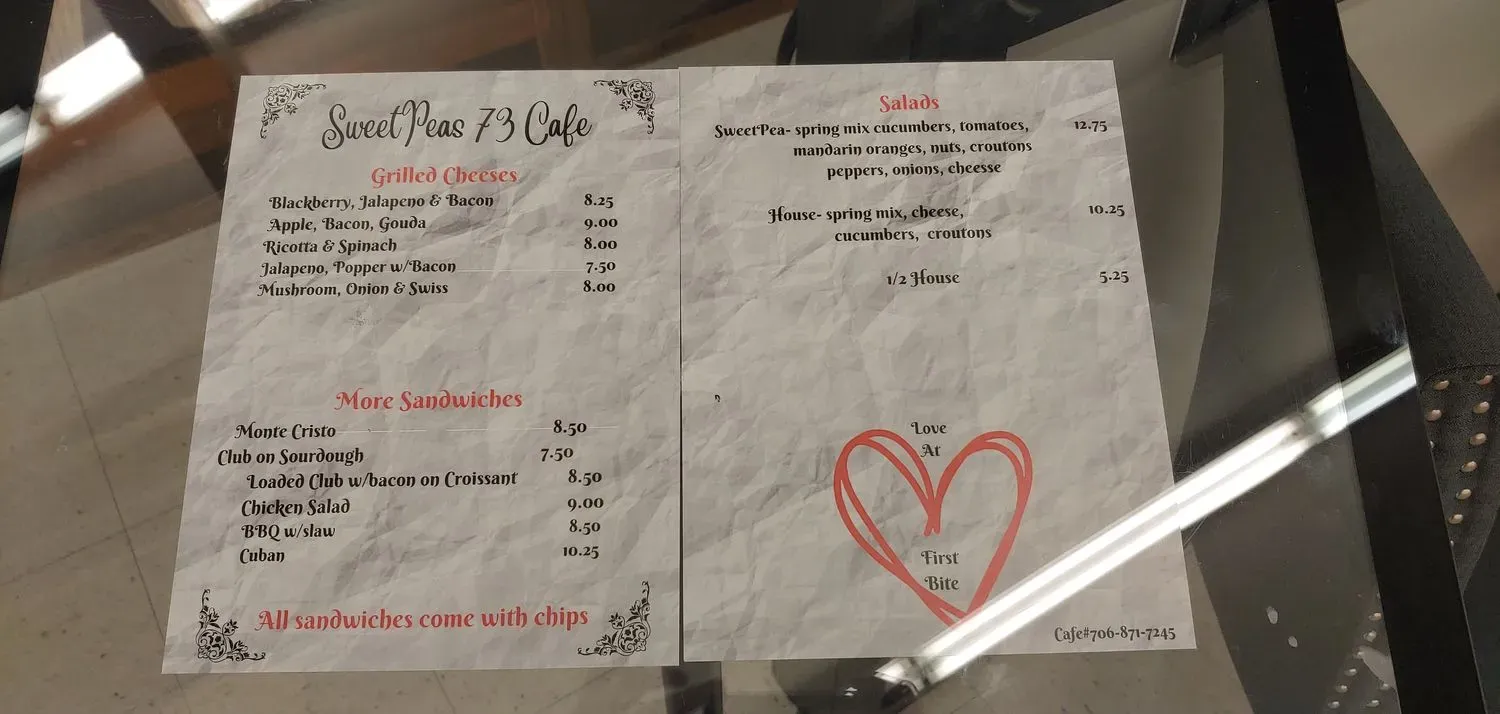 SweetPeas 73 Cafe
Grilled Cheeses
Blackberry, Jalapeno & Bacon 8.25
Apple, Bacon, Gouda 9.00
Ricotta & Spinach 8.00
Jalapeno, Popper w/Bacon 7.50
Mushroom, Onion & Swiss 8.00
More Sandwiches
Monte Cristo 8.50
Club on Sourdough 7.50
Loaded Club w/bacon on Croissant 8.50
Chicken Salad 9.00
BBQ w/slaw 8.50
Cuban 10.25
All sandwiches come with chips
Salads
SweetPea- spring mix cucumbers, tomatoes, 12.75
mandarin oranges, nuts, croutons
peppers, onions, cheesse
House- spring mix, cheese, 10.25
cucumbers, croutons
1/2 House 5.25
Love
At
First
Bite
Cafe#706-871-7245